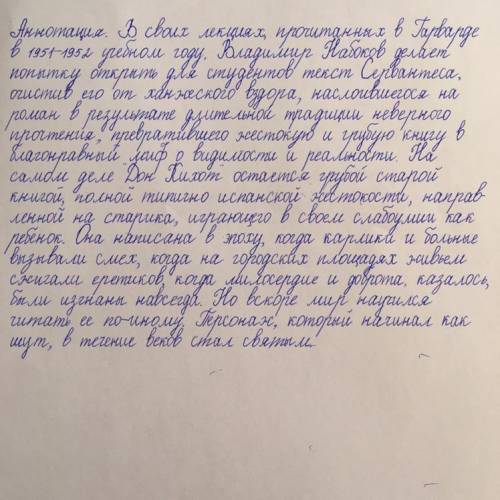 Аннотация. В своих лекциях, прочитанных в Гарварде
в 1951-1952 учебном году, Владимир Набоков делает
попытку открыть для студентов текст Сервантеса,
очистив его от ханжеского вздора, наслоившегося на
роман в результате длительной традиции неверного
прочтения, превратившего жестокую и грубую книгу в
благонравный миф о видимости и реальности. На
самом деле "Дон Кихот" остается грубой старой
книгой, полной типично испанской жестокости, направ-
ленной на старика, играющего в своем слабоумии как
ребенок. Она написана в эпоху, когда карлики и больные
вызывали смех, когда на городских площадях живьем
сжигали еретиков, когда милосердие и доброта, казалось,
были изгнаны навсегда. Но вскоре мир научился
читать ее по-иному. Персонаж, который начинал как
шут, в течение веков стал святым.